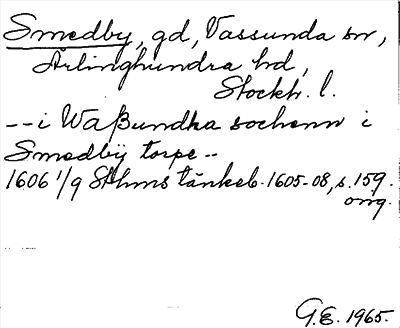 Smedby, gd, Vassunda sn,
Ärlinghundra hd,
Stockh. l.
-- i Waßundha sochenn i
Smedbÿ torpe --
1606 1/9 Sthms tänkeb. 1605-08, s. 159.
orig.
G.E. 1965.